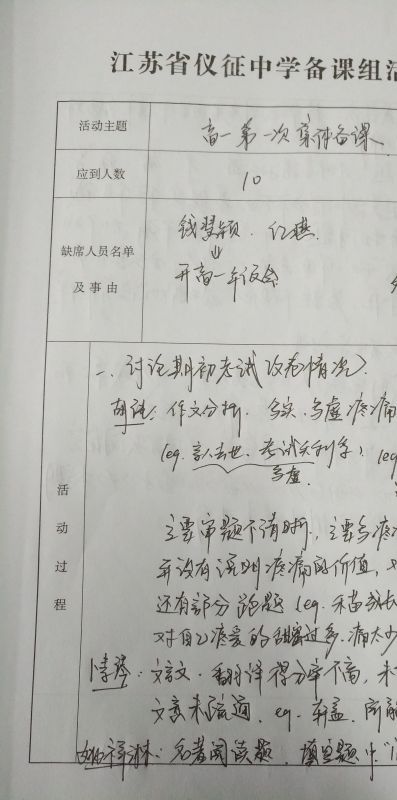 江苏省仪征中学备课组活
活动主题
高一第一次集体备课
应到人数
10
缺席人员名单
及事由
钱慧颖、红燕
开高一年级会
活动过程
一、讨论期初考试改卷情况
作文分析、写实、写虚 疼痛
(eg. 亲人去世、考试失利等)
写虚
主要审题不清晰,主要写疼
并没有说明疼痛的价值,
还有部分跑题 (eg. 禾苗成长
对自己疼爱的甜蜜过多,痛太少
文言文、翻译得分率不高,
文意未疏通, eg.
名著阅读题、填空题中